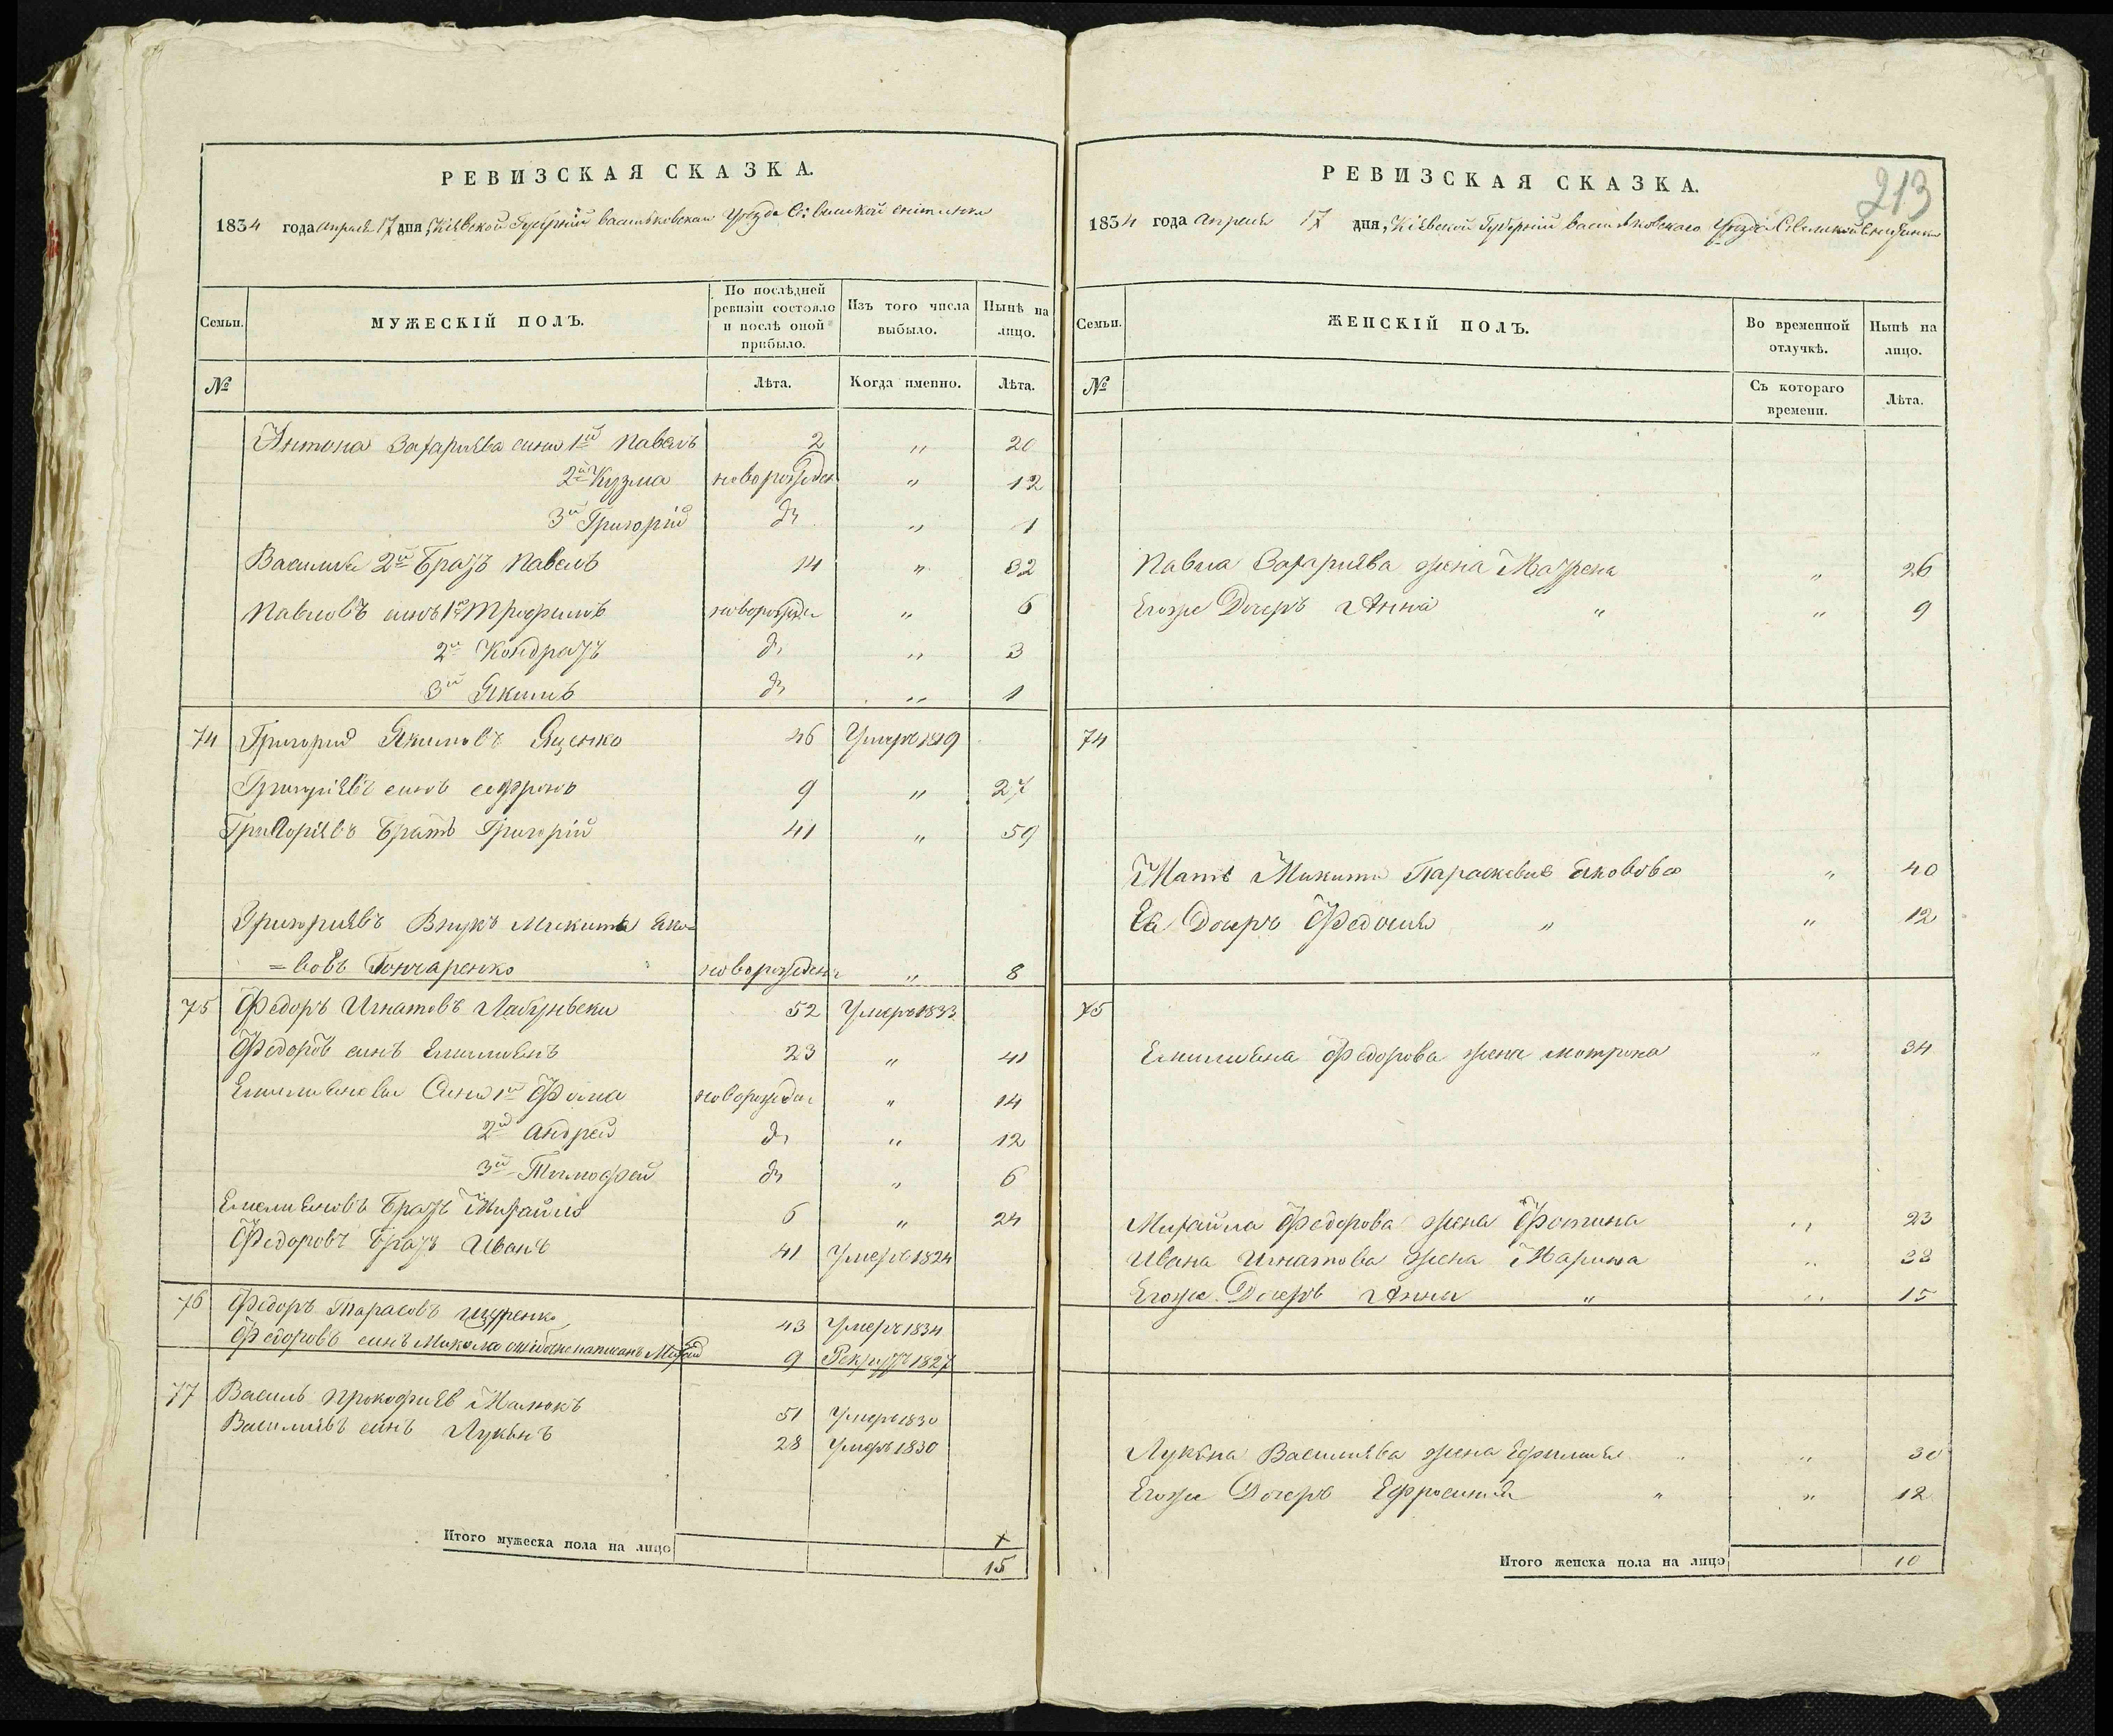 РЕВИЗСКАЯ СКАЗКА.
1834 года апреля 17 дня, Кіевской Губерніи васильковскаго Уезда С: великой снитинки
Семьи.
МУЖЕСКІЙ ПОЛЪ.
По послѣдней ревизіи состояло и послѣ оной прибыло.
Изъ того числа выбыло.
Нынѣ на лицо.
№
Лѣта.
Когда именно.
Лѣта.
Антона Захаріева сини 1й Павелъ 2 " 20
2й Кузма новорожден " 12
3й Григорій д " 1
Василия 2й Братъ Павелъ 14 " 32
Павловъ синъ 1й Трофимъ новорожден " 6
2й Кондратъ д " 3
3й Якимъ д " 1
74 Григорий Якимовъ Яценко 46 Умеръ 1819
Григоріевъ синъ 9 " 27
Григоріевъ Братъ Григорій 41 " 59
Григориевъ Внукъ Микита Яко=
=вовъ Гончаренко новорожден " 8
75 Федоръ Игнатовъ 52 Умеръ 1833
Федоровъ синъ Емилиянъ 23 " 41
Емилиянови Сини 1й Фома новорожден " 14
2й Андрей д " 12
3й Тимофей д " 6
Емелияновъ Братъ Михайло 6 " 24
Федоровъ Братъ Иванъ 41 Умеръ 1824
76 Федоръ Тарасовъ 43 Умеръ 1834
Федоровъ синъ Микола ошибочне написанъ 9 Рекрутъ 1827
77 Василь Прокофиевъ Малюкъ 51 Умеръ 1830
Василиевъ синъ Лукянъ 28 Умеръ 1830
Итого мужеска пола на лицо 15
213
РЕВИЗСКАЯ СКАЗКА.
1834 года апреля 17 дня, Кіевской Губерніи васильковскаго Уезда С Великой Снитинки
Семьи.
ЖЕНСКІЙ ПОЛЪ.
Во временной отлучкѣ.
Нынѣ на лицо.
№
Съ котораго времени.
Лѣта.
Павла Захариева жена Матрена " 26
Егоже Дочеръ Анна " " 9
74
Мать Микити Параскевия Яковова " 40
Ея Дочеръ Федосия " " 12
75
Емилияна Федорова жена мотрона " 34
Михайла Федорова жена Фотина " 23
Ивана Игнатова жена Марина " 38
Егоже Дочеръ Анна " " 15
Лукяна Василиева жена Ефимия " " 30
Егоже Дочеръ Ефросиния " " 12
Итого женска пола на лицо 10